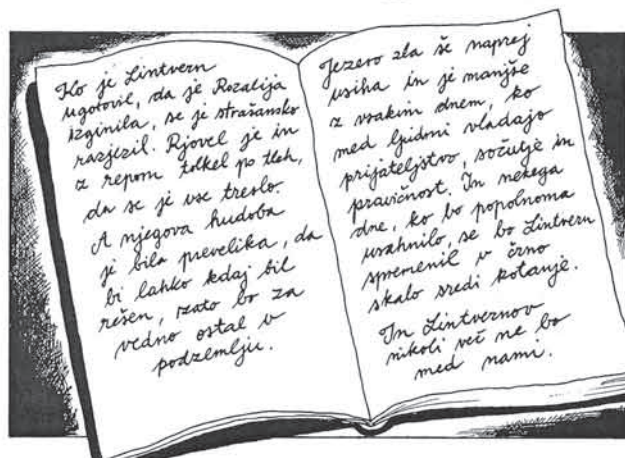 Ko je Lintvern
ugotovil, da je Rozalija
izginila, se je strašansko
razjezil. Rjovel je in
z repom tolkel po tleh,
da se je vse treslo.
A njegova hudoba
je bila prevelika, da
bi lahko kdaj bil
rešen, zato bo za
vedno ostal v
podzemlju.
Jezero zla še naprej
usiha in je manjše
z vsakim dnem, ko
med ljudmi vladajo
prijateljstvo, sočutje in
pravičnost. In nekega
dne, ko bo popolnoma
usahnilo, se bo Lintvern
spremenil v črno
skalo sredi kotanje.
In Lintvernov
nikoli več ne bo
med nami.